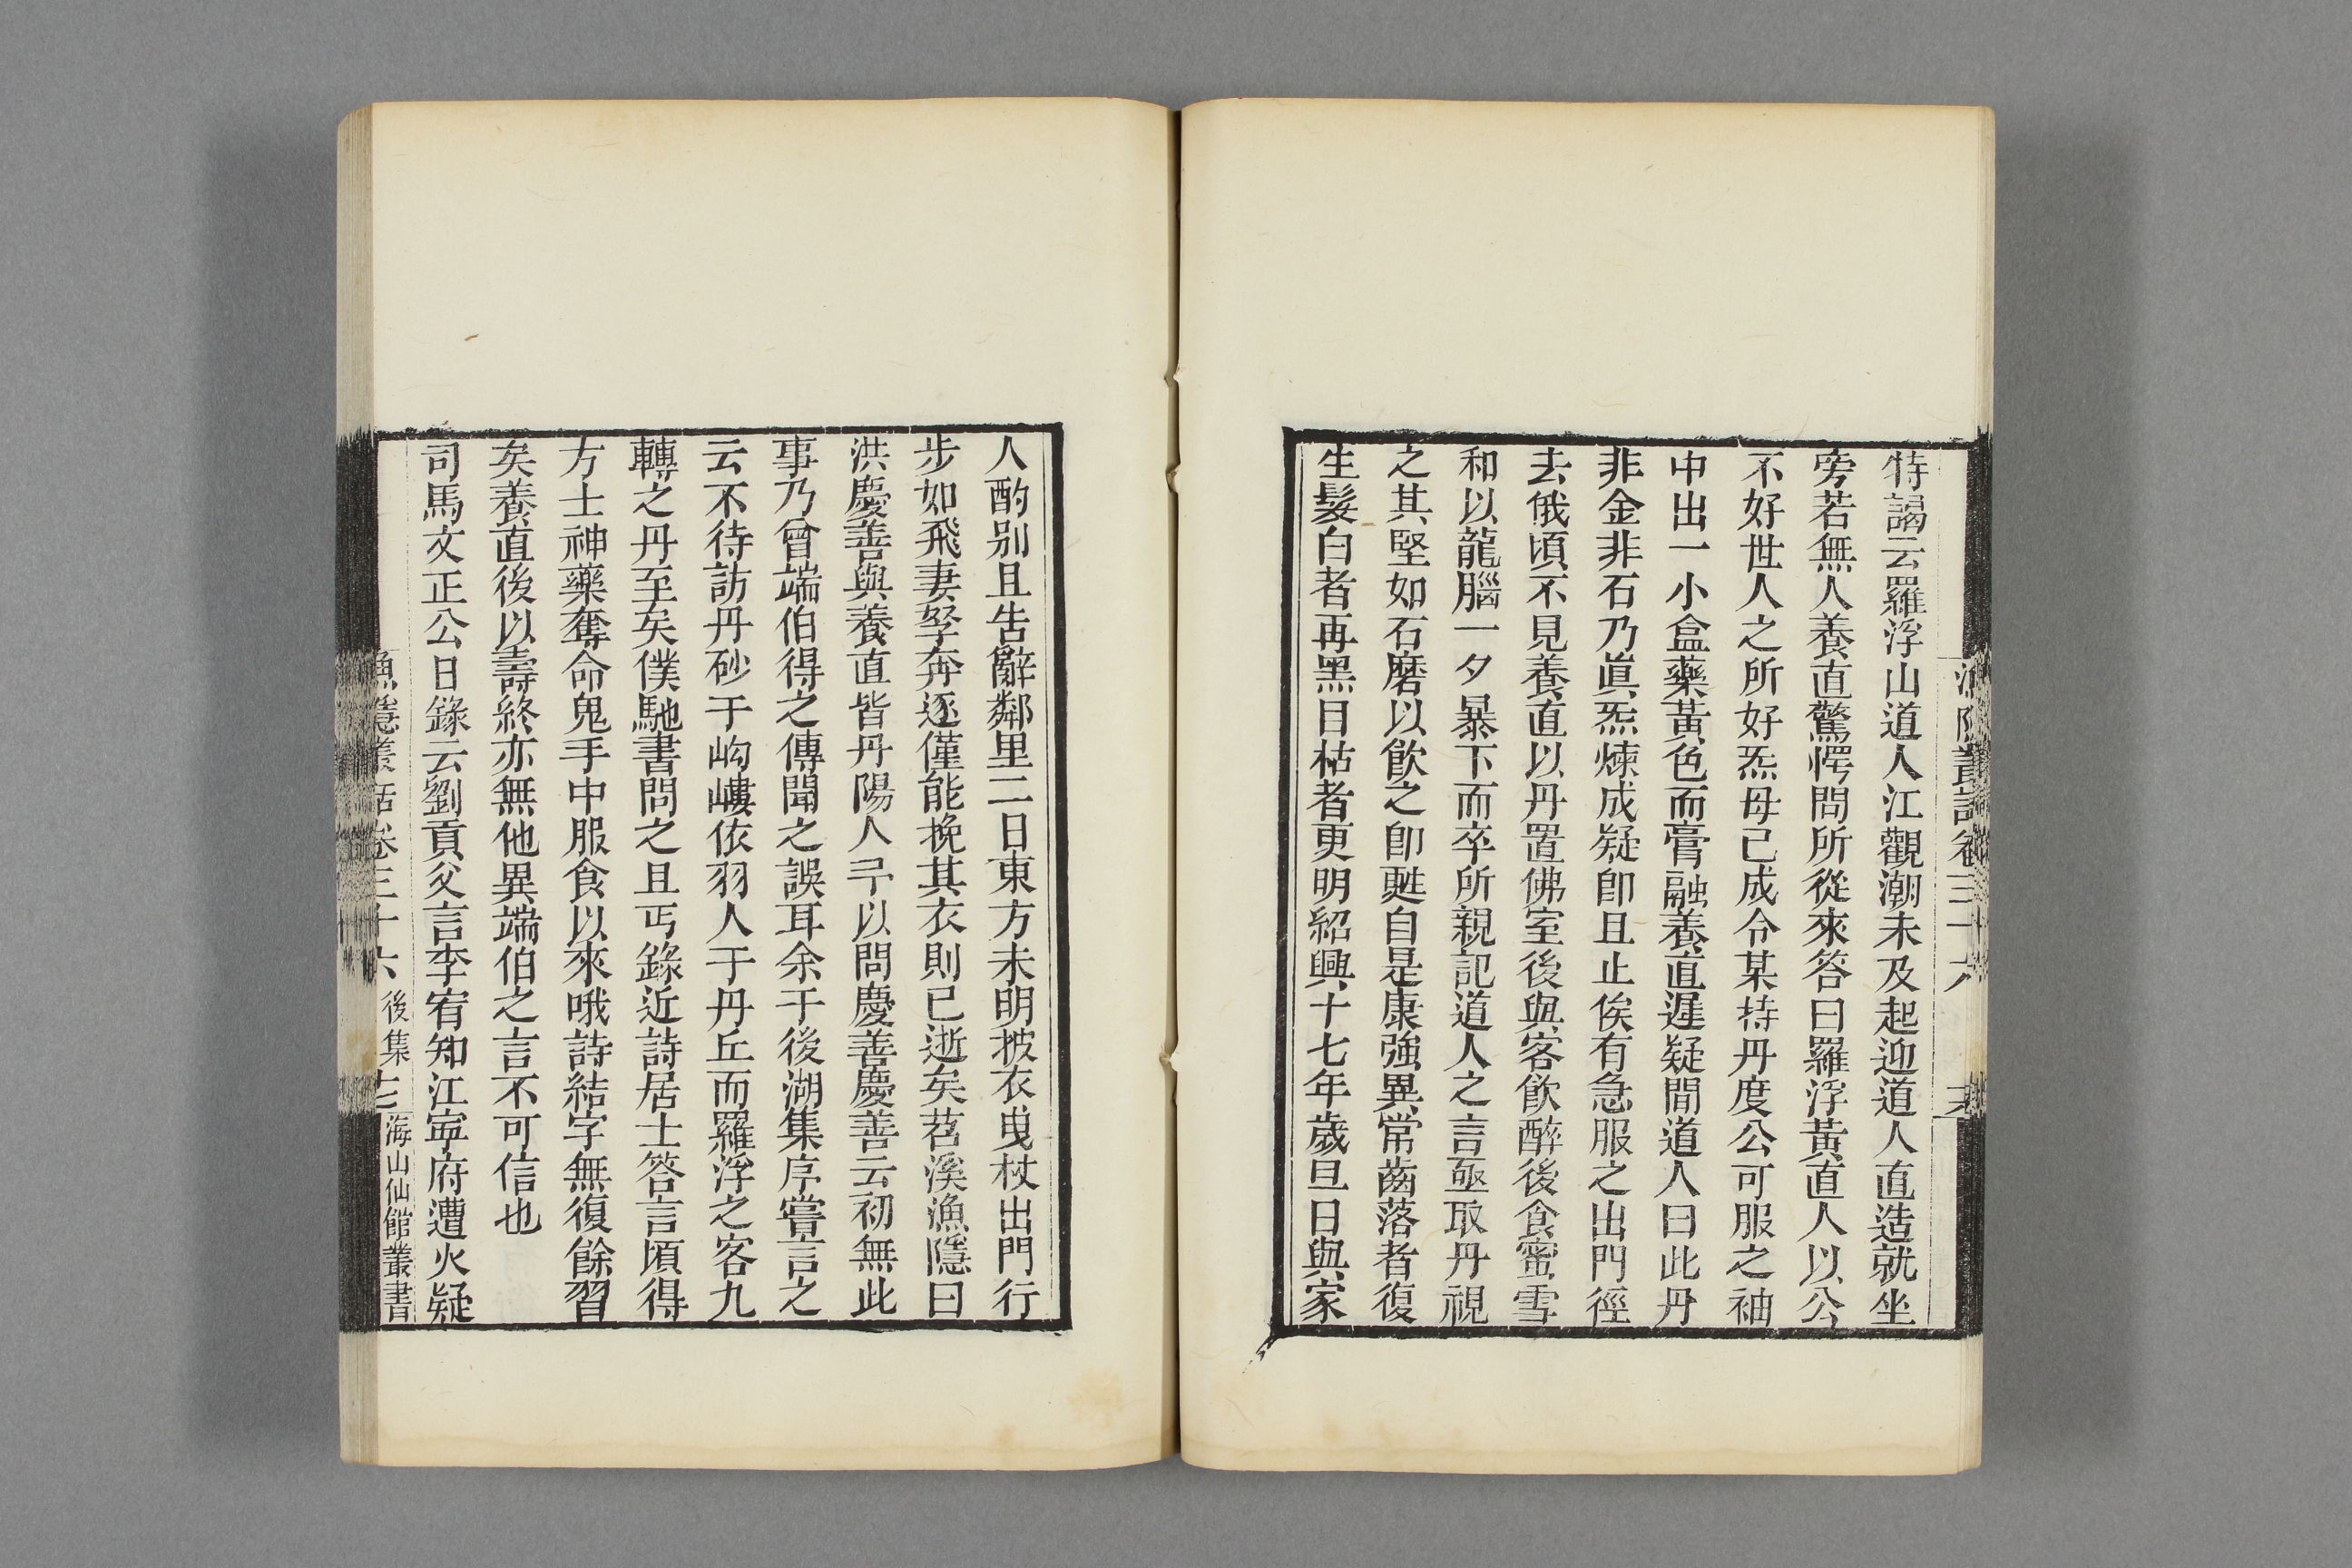 特謁云羅浮山道人江觀潮未及起迎道人直造就坐
旁若無人養直驚愕問所從來答曰羅浮黃直人以公
不好世人之所好炁母已成令某持丹度公可服之袖
中出一小盒藥黃色而膏融養直遲疑間道人曰此丹
非金非石乃眞炁煉成疑卽且止俟有急服之出門徑
去俄頃不見養直以丹置佛室後與客飮醉後食蜜雪
和以龍腦一夕暴下而卒所親記道人之言亟取丹視
之其堅如石磨以飮之卽甦自是康強異常齒落者復
生髮白者再黑目枯者更明紹興十七年歲旦日與家
人酌別且告辭鄰里二日東方未明披衣曳杖出門行
步如飛妻孥奔逐僅能挽其衣則已逝矣苕溪漁隱曰
洪慶善與養直皆丹陽人予以問慶善慶善云初無此
事乃曾端伯得之傳聞之誤耳余于後湖集序嘗言之
云不待訪丹砂于岣嶁依羽人于丹丘而羅浮之客九
轉之丹至矣僕馳書問之且丐錄近詩居士答言頃得
方士神藥奪命鬼手中服食以來哦詩結字無復餘習
矣養直後以壽終亦無他異端伯之言不可信也
司馬文正公日錄云劉貢父言李宥知江寧府遭火疑
漁隱叢話卷三十六 後集 七 海山仙館叢書